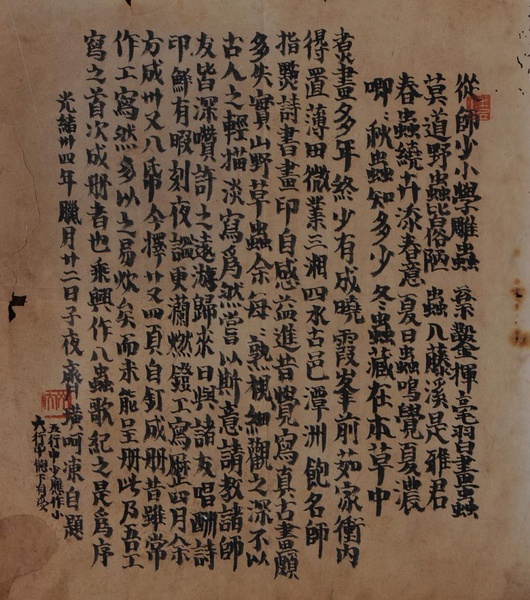 從師少小學雕蟲 棄鑿揮毫習畫蟲
莫道野蟲皆俗陋 蟲入藤溪是雅君
春蟲繞卉添春意 夏日蟲鳴覺夏濃
唧〻秋蟲知多少 冬蟲藏在本草中
煮畫多年終少有成曉霞峯前茹家衝內
得置薄田微業三湘四水古邑潭洲飽名師
指點詩書畫印自感益進昔覺寫真古畫頗
多失實山野草蟲余每〻熟視細觀之深不以
古人之輕描淡寫為然嘗以斯意請教諸師
友皆深讚許之遠游歸來日與諸友唱酬詩
印鮮有暇刻夜謐更瀾燃鐙工寫歷四月余
方成卅又八幀今擇廿又四頁自釘成册昔雖常
作工寫然多以之易炊矣而未能呈册此乃吾工
寫之首次成册者也乘興作八蟲歌紀之是為序
光緒卅四年臘月廿二日子夜齊璜呵凍自題
五行中少應作小
六行中飽下有受